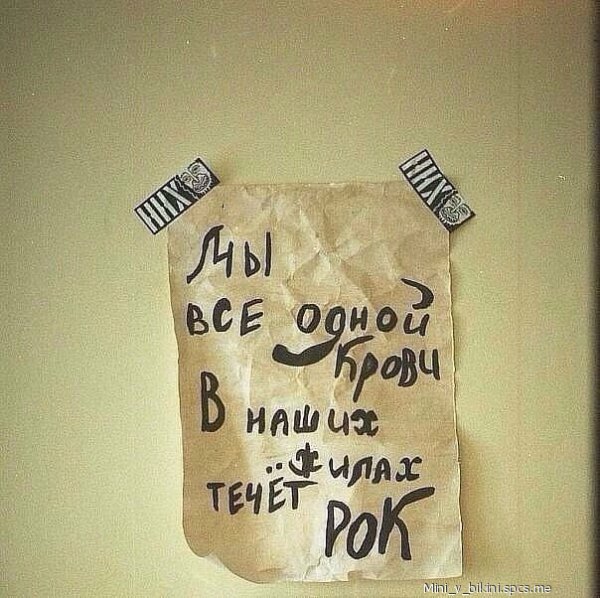 НИХ
НИХ
Мы
ВСЕ одной
крови
В НАШИХ
ЖИЛАХ
ТЕЧЁТ
РОК
Mini_v_bikini.spcs.me